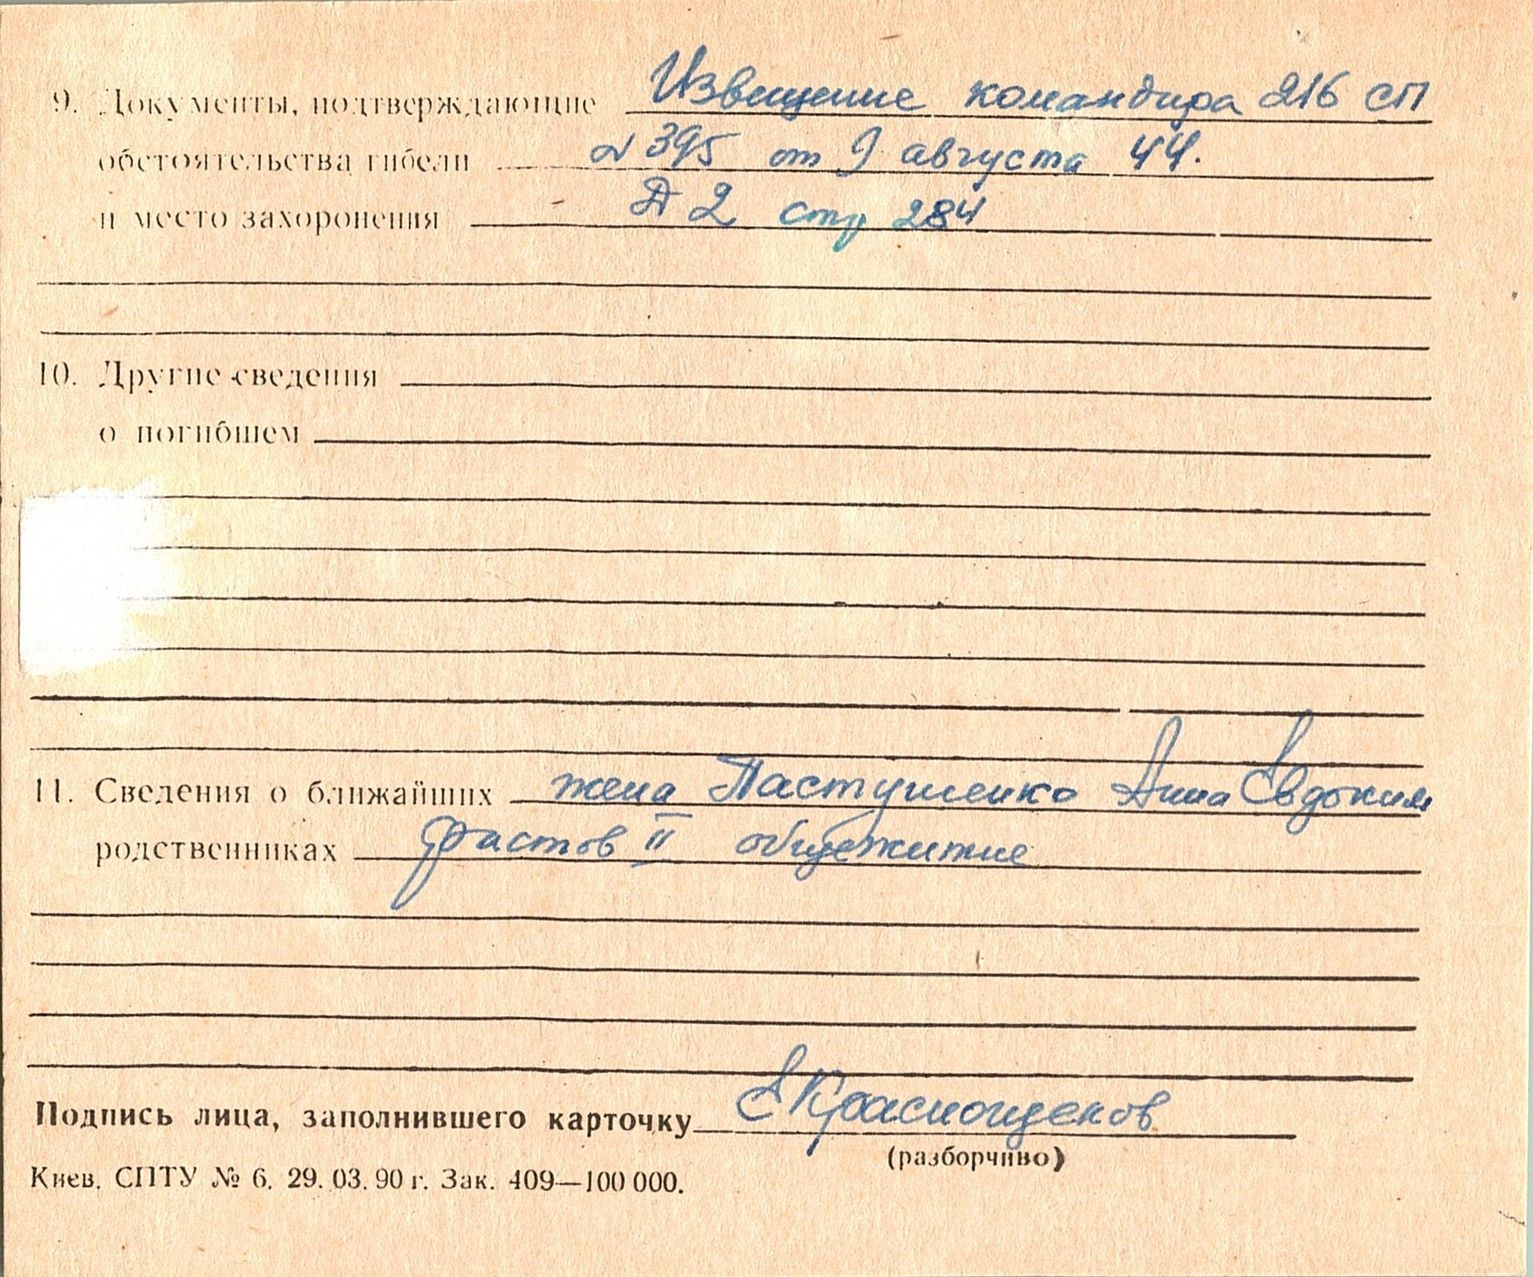 9. Документы, подтверждающие Извещение командира 216 СП
обстоятельства гибели № 395 от 9 августа 44.
и место захоронения Д 2 стр 284
10. Другие сведения
о погибшем
11. Сведения о ближайших жена Пастушенко Анна Евдоким
родственниках Фастов II общежитие
Подпись лица, заполнившего карточку ЕКраснощеков
(разборчиво)
Киев. СПТУ № 6. 29.03.90 г. Зак. 409—100 000.